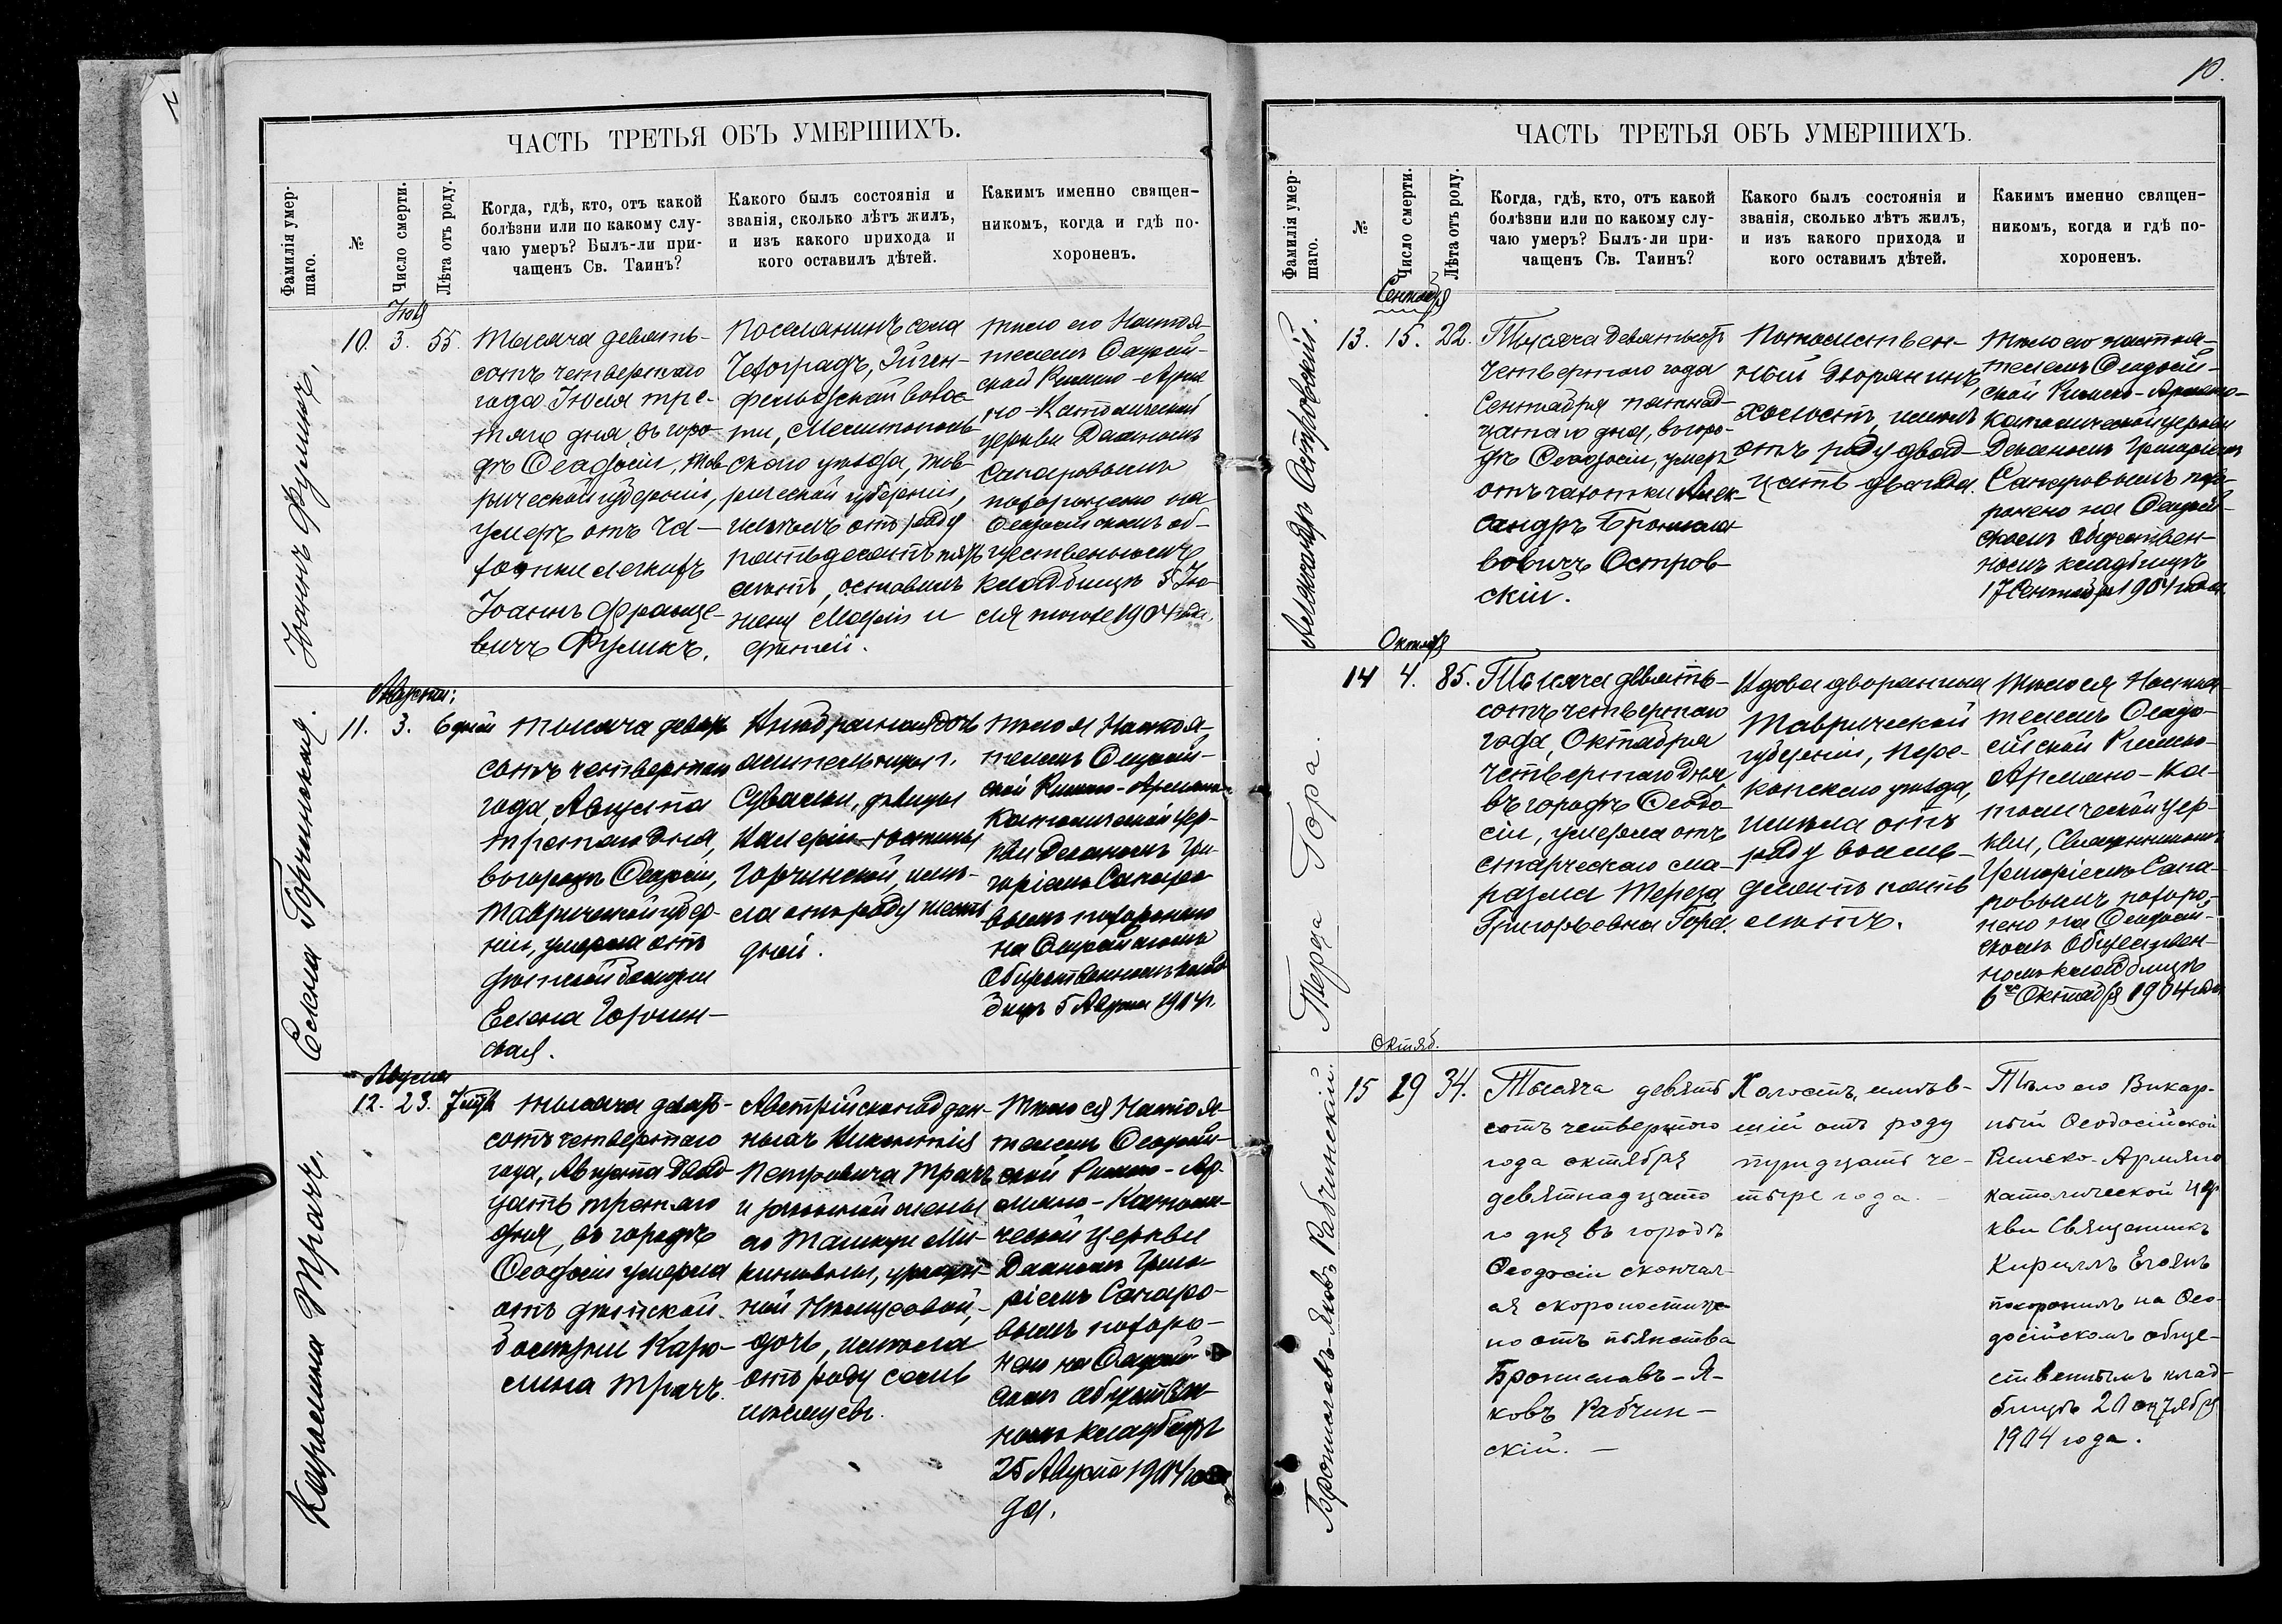 10.
ЧАСТЬ ТРЕТЬЯ ОБЪ УМЕРШИХЪ.
Фамилія умер-
шаго.
№
Число смерти.
Лѣта отъ роду.
Когда, гдѣ, кто, отъ какой
болѣзни или по какому слу-
чаю умеръ? Былъ-ли при-
чащенъ Св. Таинъ?
Какого былъ состоянія и
званія, сколько лѣтъ жилъ,
и изъ какого прихода и
кого оставилъ дѣтей.
Какимъ именно священ-
никомъ, когда и гдѣ по-
хороненъ.
Іюля
Іоаннъ Фуликъ.
10. 3. 55.
Тысяча девять-
сотъ четвертаго
года Іюля тре-
тяго дня, въ горо-
дѣ Ѳеодосіи, Тав-
рической губерніи,
умеръ отъ ча-
хотки легкихъ
Іоаннъ Франце-
вичъ Фуликъ.
Поселянинъ села
Чехоградъ, Эйген-
фельдской волос-
ти, Мелитополь-
скаго уѣзда, Тав-
рической губерніи,
имѣлъ отъ роду
пятьдесятъ пять
лѣтъ, оставилъ
жену Марію и
дѣтей.
Тѣло его Настоя-
телемъ Ѳеодосій-
ской Римско-Армя-
но-Католической
церкви Деканомъ
Сапаровымъ
похоронено на
Ѳеодосійскомъ об-
щественномъ
кладбищѣ 5 Ію-
ля тогоже 1904 года.
Августа:
Елена Горчинская.
11. 3. 6 дней
Тысяча девять
сотъ четвертаго
года, Августа
третьяго дня,
въ городѣ Ѳеодосіи,
Таврической губер-
ніи, умерла отъ
дѣтской болѣзни
Елена Горчин-
ская.
Незаконная дочь
дѣвицы
Валеріи
Горчинской, имѣ-
ла отъ роду шесть
дней.
Тѣло ея Настоя-
телемъ Ѳеодосій-
ской Римско-Армяно
Католической цер-
кви Деканомъ Гри-
горіемъ Сапаро-
вымъ похоронено
на Ѳеодосійскомъ
Общественномъ клад-
бищѣ 5 Августа 1904 г.
Августа
Каролина Трачъ.
12. 23.
Тысяча девять-
сотъ четвертаго
года, Августа двад-
цать третьяго
дня, въ городѣ
Ѳеодосіи умерла
отъ дѣтской
болѣзни Каро-
лина Трачъ.
Австрійскоподдан-
ныхъ Викентія
Петровича Трачъ
и законной жены
его
дочь, имѣла
отъ роду семь
мѣсяцевъ.
Тѣло ея Настоя-
телемъ Ѳеодосій-
ской Римско-Ар-
мяно-Католи-
ческой Церкви
Деканомъ Григо-
ріемъ Сапаро-
вымъ похоро-
нено на Ѳеодосій-
скомъ обществен-
номъ кладбищѣ
25 Августа 1904 го-
да.
ЧАСТЬ ТРЕТЬЯ ОБЪ УМЕРШИХЪ.
Фамилія умер-
шаго.
№
Число смерти.
Лѣта отъ роду.
Когда, гдѣ, кто, отъ какой
болѣзни или по какому слу-
чаю умеръ? Былъ-ли при-
чащенъ Св. Таинъ?
Какого былъ состоянія и
званія, сколько лѣтъ жилъ,
и изъ какого прихода и
кого оставилъ дѣтей.
Какимъ именно священ-
никомъ, когда и гдѣ по-
хороненъ.
Сентября
Александръ Островскій.
13. 15. 22.
Тысяча девятьсотъ
четвертаго года
Сентября пятнад-
цатаго дня, въ горо-
дѣ Ѳеодосіи, умеръ
отъ чахотки Алек-
сандръ Бронисла-
вовичъ Остров-
скій.
Потомствен-
ный дворянинъ,
холостъ, имѣлъ
отъ роду двад-
цать два года.
Тѣло его настоя-
телемъ Ѳеодосій-
ской Римско-Армяно-
Католической церкви
Деканомъ Григоріемъ
Сапаровымъ похо-
ронено на Ѳеодосій-
скомъ Обществен-
номъ кладбищѣ
17 Сентября 1904 года.
Октября
Тереза Гора.
14 4. 85.
Тысяча девять-
сотъ четвертаго
года, Октября
четвертаго дня
въ городѣ Ѳеодо-
сіи, умерла отъ
старческаго ма-
разма Тереза
Григорьевна Гора.
Вдова дворянина
Таврической
губерніи, Пере-
копскаго уѣзда,
имѣла отъ
роду восемь-
десятъ пять
лѣтъ.
Тѣло ея Настоя-
телемъ Ѳеодо-
сійской Римско-
Армяно-Ка-
толической цер-
кви, Священникомъ
Григоріемъ Сапа-
ровымъ похоро-
нено на Ѳеодосій-
скомъ Обществен-
номъ кладбищѣ
6го Октября 1904 года
Октяб.
Брониславъ-Яковъ Рабчинскій.
15 19 34.
Тысяча девять
сотъ четвертого
года октября
девятнадцато
го дня въ городѣ
Ѳеодосіи скончал-
ся скоропостиж-
но отъ пьянства
Брониславъ-Я-
ковъ Рабчин-
скій.
Холостъ, имѣв-
шій отъ роду
тридцать че-
тыре года.
Тѣло его Викар-
ный Ѳеодосійской
Римско-Армяно
католической цер
кви Священникъ
Кириллъ Егоянъ
похоронилъ на Ѳео-
досійскомъ обще-
ственномъ клад-
бищѣ 20 октября
1904 года.